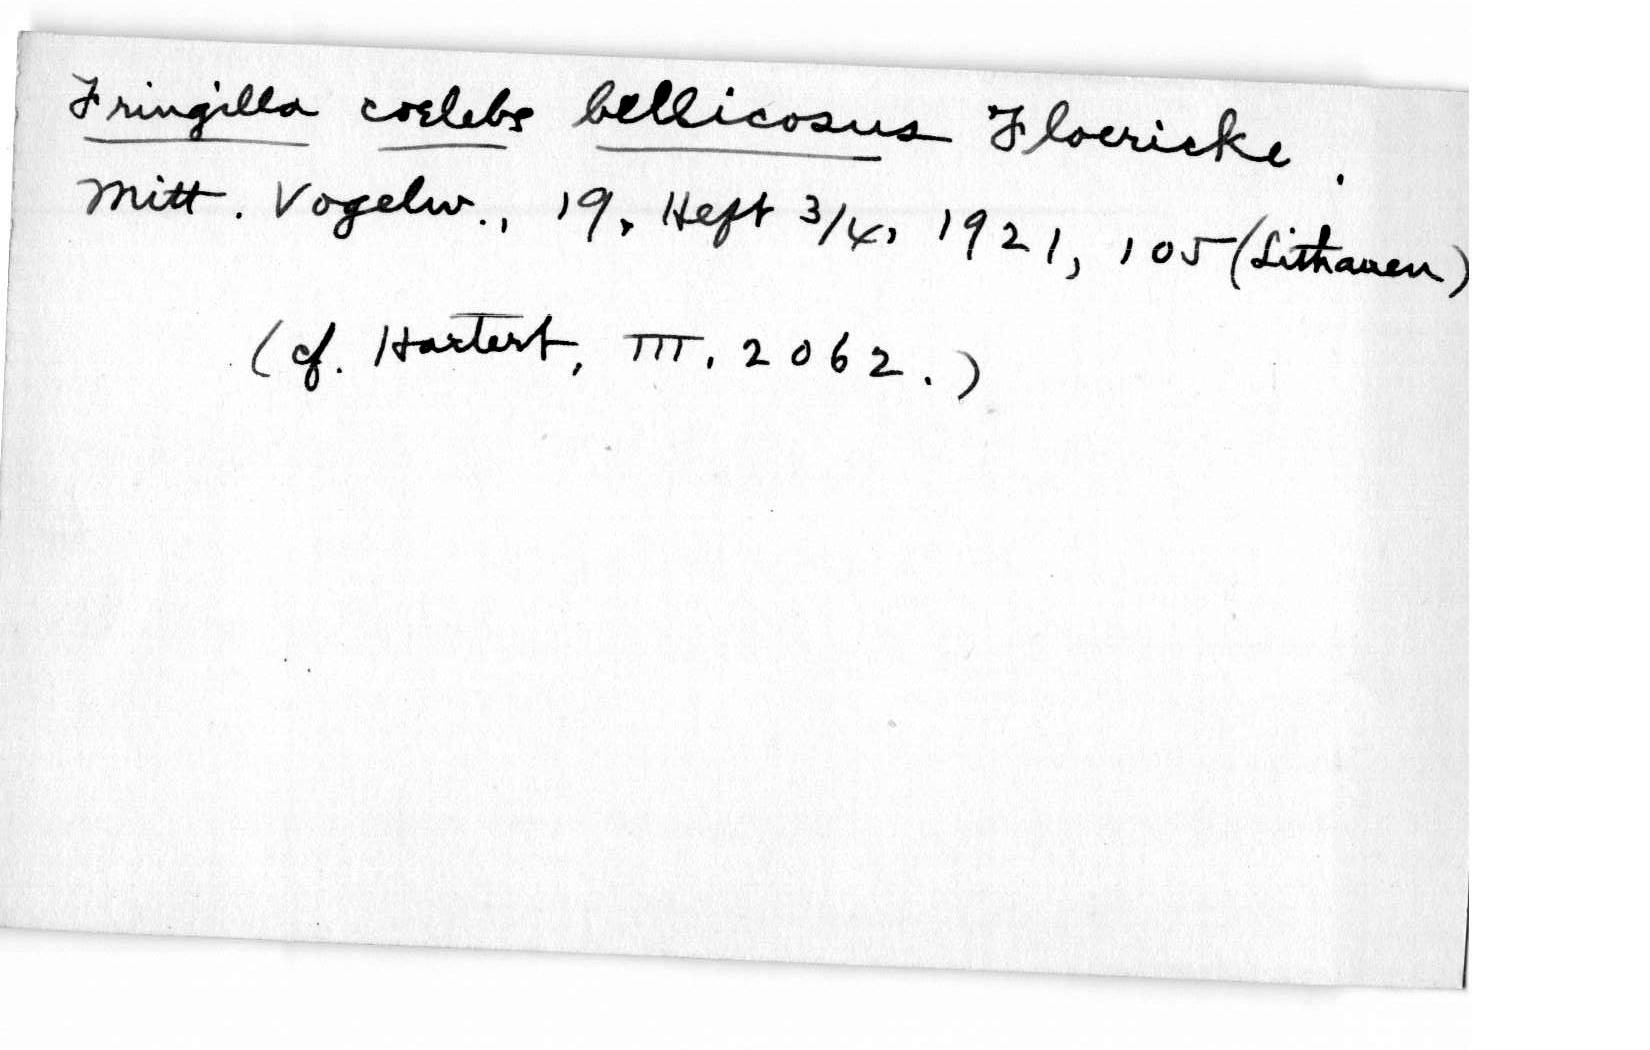 Fringilla coelebs bellicosus Floericke.
Mitt. Vogelw., 19, Heft 3/4, 1921, 105 (Lithauen)
(cf. Hartert, III, 2062.)